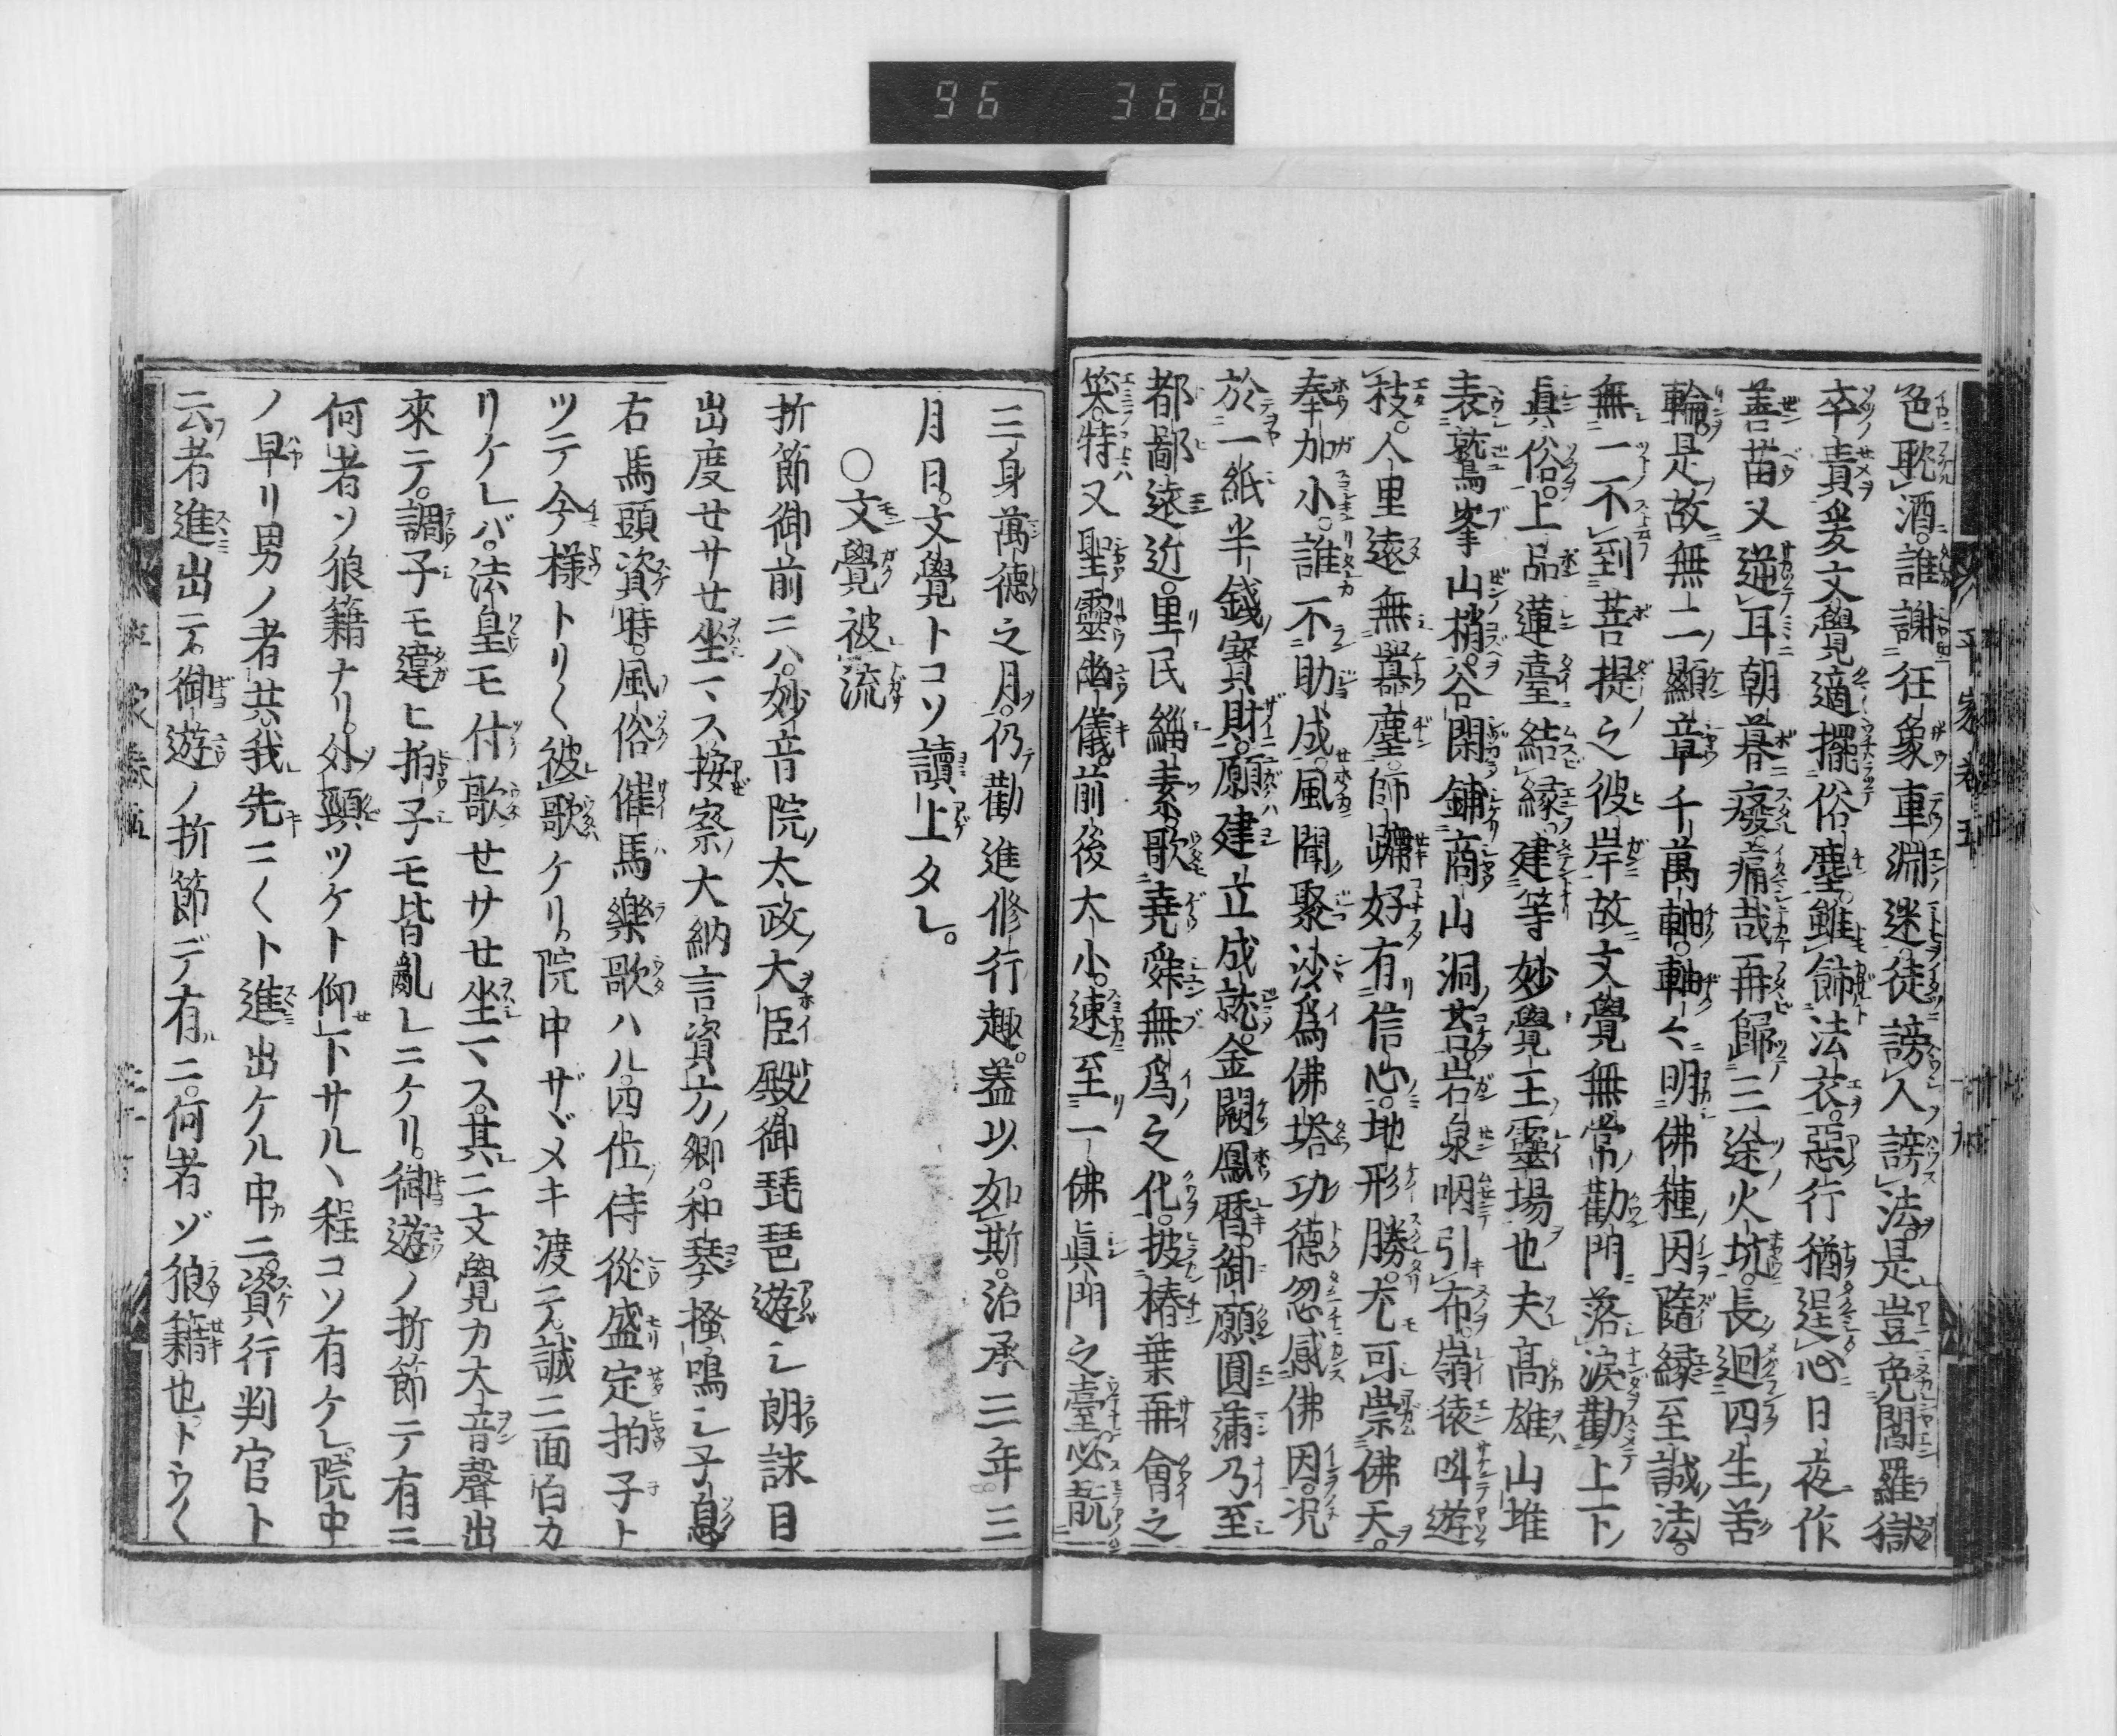 96 368
色耽酒。誰謝狂象車淵迷。徒謗人謗法。是豈免閻羅獄
卒責爰文覺適擺俗塵。雖飾法衣。惡行猶逞心日夜作
善苗又逆耳朝暮廢痛哉再歸三途火坑。長廻四生苦
輪。是故無二顯章千萬軸。軸々明佛種因隨緣至誠法。
無一不到菩提之彼岸故文覺無常勸門落淚勸上下
眞俗。上品蓮臺結緣。建等妙覺王靈場也夫高雄山堆
表鷲峯山梢。谷閑鋪商山洞苔。岩泉咽引布。嶺猿叫遊
枝。人里遠無囂塵。師蹤好有信心。地形勝。尤可崇佛天。
奉加小。誰不助成。風聞聚沙爲佛塔功德忽感佛因。況
於一紙半錢寶財。願建立成就。金闕鳳曆。御願圓滿乃至
都鄙遠近。里民緇素。歌堯舜無爲之化。披椿葉再會之
笑。特又聖靈幽儀。前後大小。速至一佛眞門之臺。必翫
三身萬德之月。仍勸進修行趣。蓋以如斯。治承三年三
月日。文覺トコソ讀上タレ。
○文覺被流
折節御前ニハ。妙音院太政大臣殿御琵琶遊レ朗詠目
出度セサセ坐一ス按察大納言資方卿。和琴搔鳴レ子息
右馬頭資時。風俗催馬樂歌ハル。四位侍從盛定拍子ト
ツテ今様トリ〱被歌ケリ。院中ザヾメキ渡テ誠ニ面白カ
リケレバ。法皇モ付歌セサセ坐一ス。其ニ文覺カ大音聲出
來テ。調子モ違ヒ拍子モ皆亂レニケリ。御遊ノ折節テ有ニ
何者ソ狼籍ナリ。外頸ツケト仰下サルヽ程コソ有ケレ院中
ノ早リ男ノ者共。我先ニ〱ト進出ケル中ニ。資行判官ト
云者進出テ。御遊ノ折節デ有ニ。何者ゾ狼籍也。トウ〱